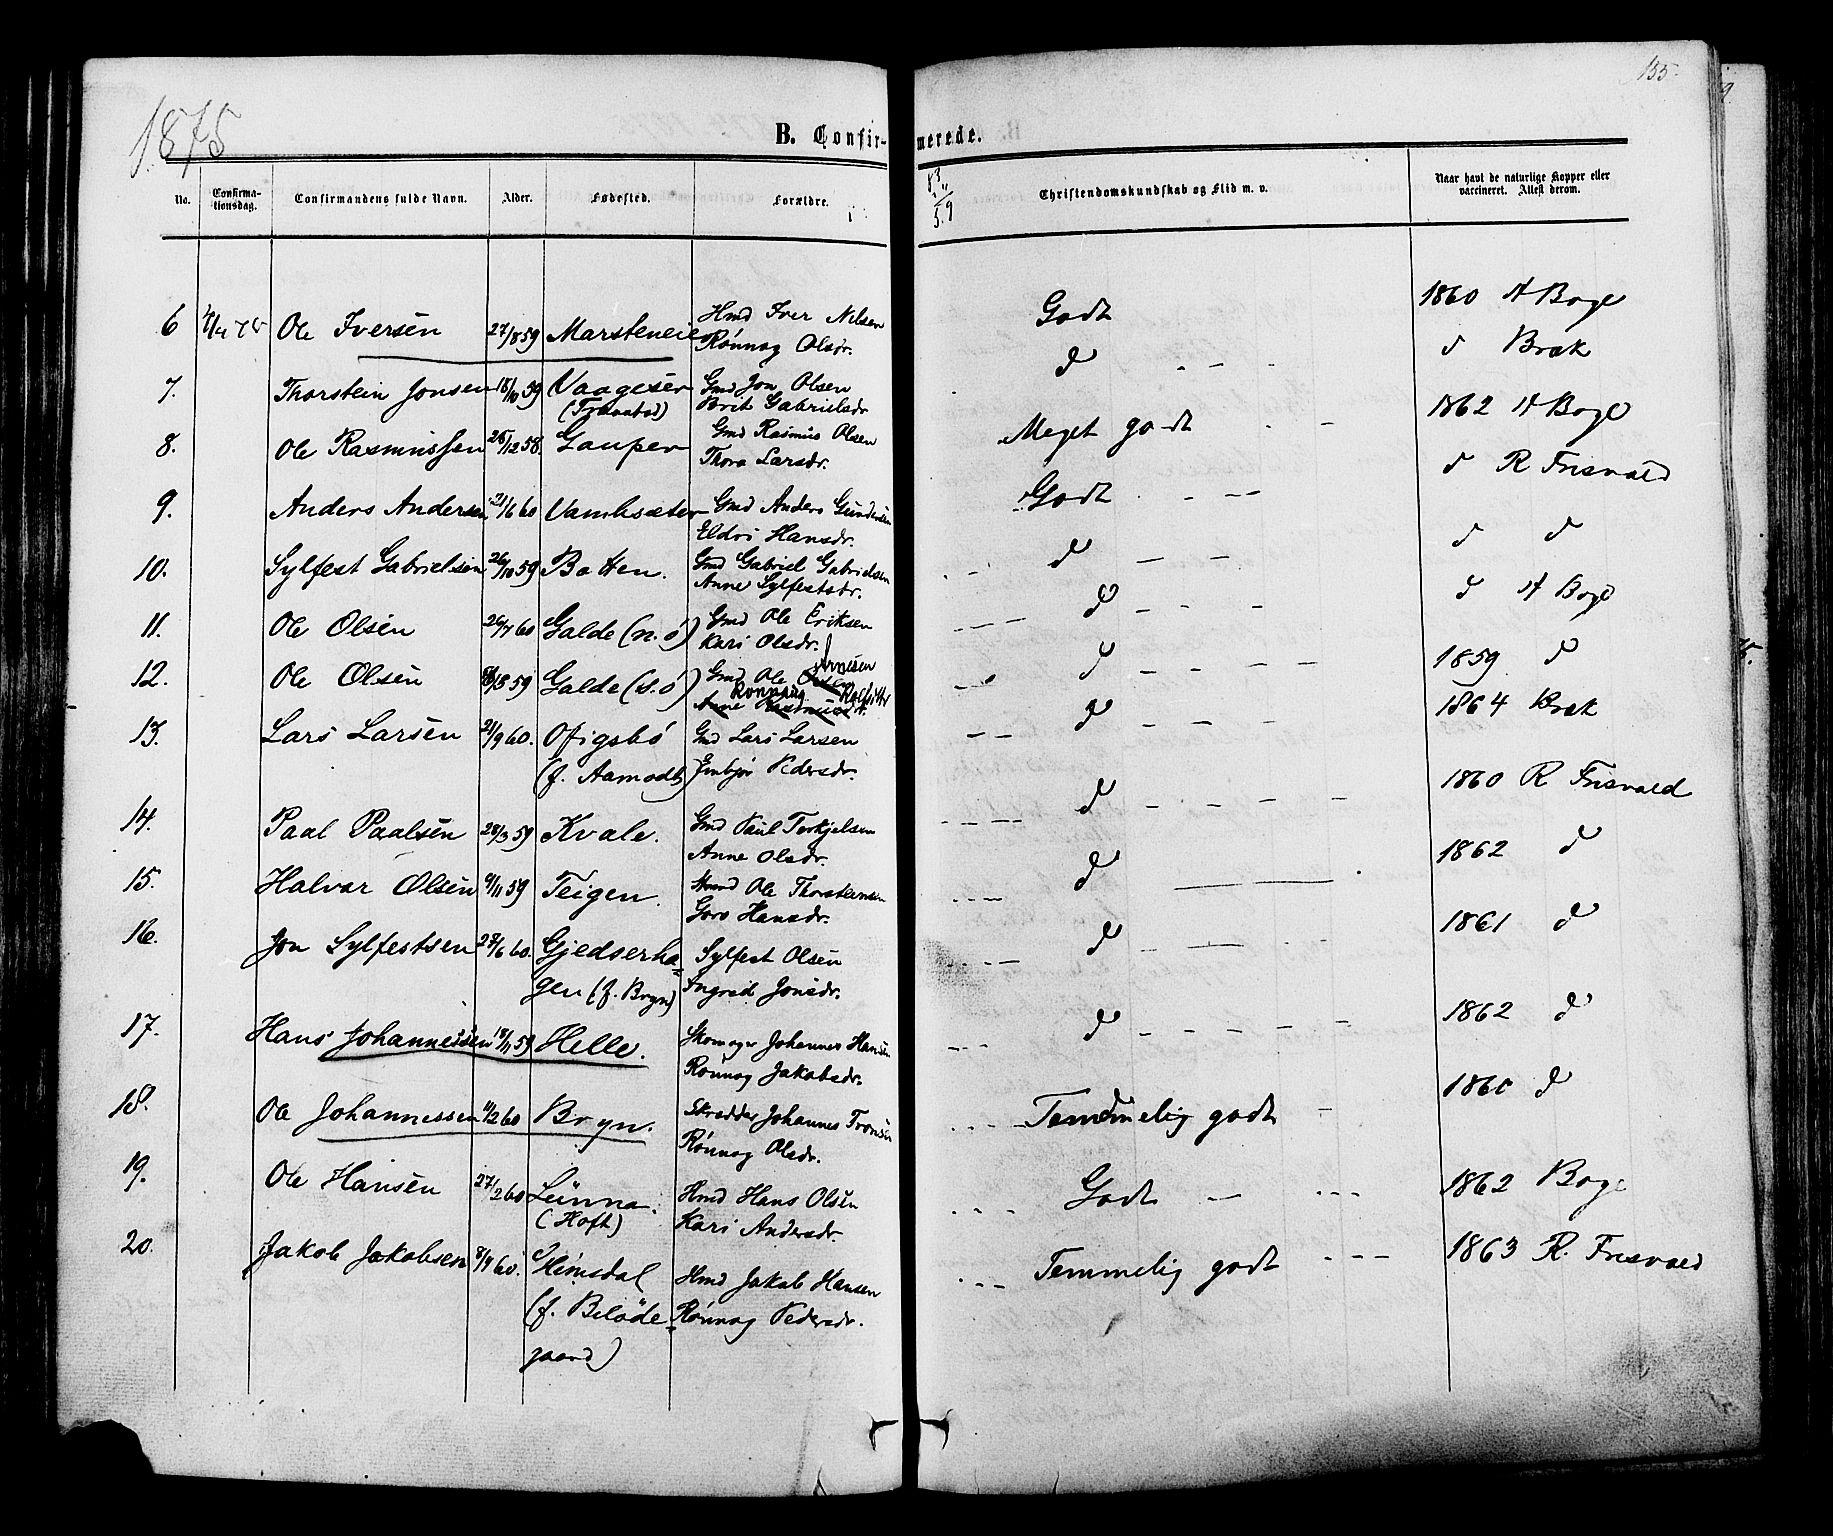 1875
155.
B. Confir-
merede.
No.
Confirma-
tionsdag.
Confirmandens fulde Navn.
Alder.
Fødested.
Forældre.
Christendomskundskab og Flid m. v.
Naar havt de naturlige Kopper eller
vaccineret. Attest derom.
6 Ole Iversen 27/8 59 Marsteneie Hmd Iver Nilsen Godt 1860 A Boge
Rönnog Olsdr.
7. Thorstein Jonsen 18/10 59 Vaageser Gmd Jon Olsen d d Bræk
Brit Gabrielsdr
8. Ole Rasmussen 26/12 58. Gauper Gmd Rasmus Olsen Meget godt 1862 A Boge
Thora Larsdr.
9. Anders Andersen 21/6 60 Vamhsæter Gmd Anders Gundersen Godt d R Frisvold
Eldri Hansdr.
10. Sylfest Gabrielsen 26/10 59 Botten. Gmd Gabriel Gabrielsen d d d
Anne Sylfestsdr.
11. Ole Olsen 26/7 60 Galde (n. ö) Gmd Ole Eriksen d d A Boge
Kari Olsdr.
12. Ole Olsen 59 Galde (s. ö) Gmd Ole Arnesen d 1859 d
Anne Rönnaug
13. Lars Larsen 21/9 60. Ofigsbö Gmd Lars Larsen d 1864 Bræk
(f. Aamodt) Embjör Pedersdr.
14. Paal Paalsen 28/3 59 Kvale. Gmd Paul Torkjelsen d 1860 R Frisvold
Anne Olsdr.
15. Halvar Olsen 9/11 59 Teigen. Hmd Ole Thorstensen d 1862 d
Goro Hansdr.
16. Jon Sylfestsen 27/6 60. Gjedserha= Sylfest Olsen d 1861 d
gen (f. Bryn) Ingrid Jonsdr.
17. Hans Johannessen 18/11 59 Helle. Skomager Johannes Hansen d 1862 d
Rönnog Jakobsdr.
18. Ole Johannessen 11/2 60 Bryn. Skrædder Johannes Tronsen Temmelig godt 1860 d
Rönnog Olsdr.
19. Ole Hansen 27/2 60 Lunna. Hmd Hans Olsen Godt 1862 Boge
(Hoft) Kari Andersdr.
20. Jakob Jakobsen 8/7 60. Slimsdal Hmd Jakob Hansen Temmelig godt 1863 R. Frisvold
(f. Belöde= Rönnog Pedersdr.
gaard)